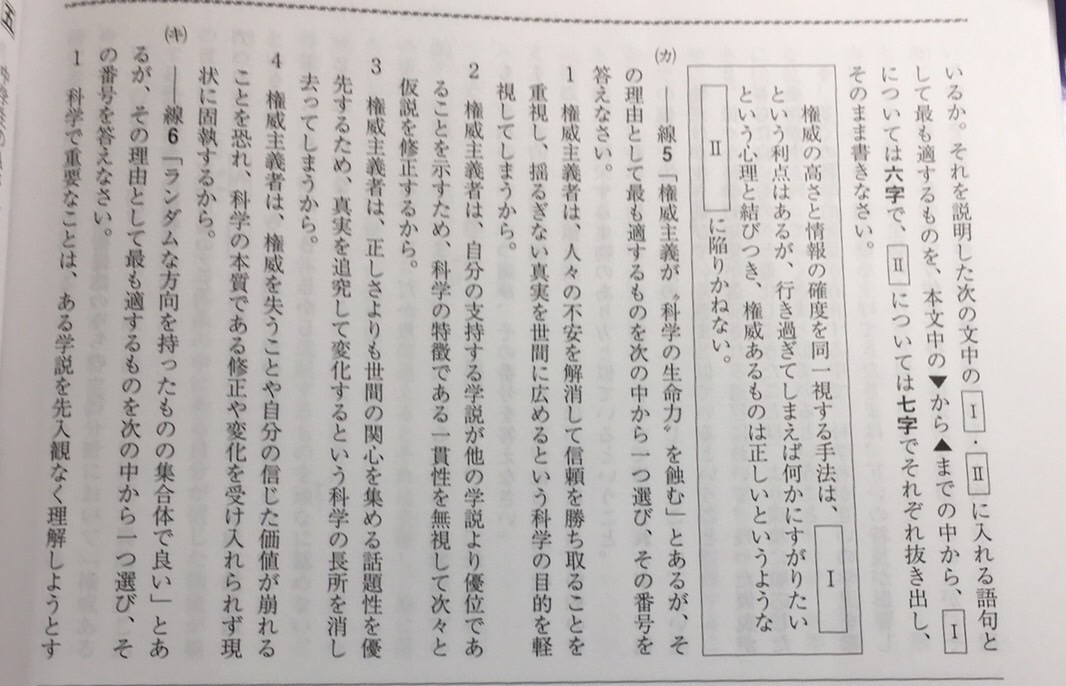 いるか。それを説明した次の文中の Ⅰ ・ Ⅱ に入れる語句と
して最も適するものを、本文中の▼から▲までの中から、 Ⅰ
については六字で、 Ⅱ については七字でそれぞれ抜き出し、
そのまま書きなさい。
権威の高さと情報の確度を同一視する手法は、 Ⅰ
という利点はあるが、行き過ぎてしまえば何かにすがりたい
という心理と結びつき、権威あるものは正しいというような
Ⅱ に陥りかねない。
㋕ ――線5「権威主義が〝科学の生命力〟を蝕む」とあるが、そ
の理由として最も適するものを次の中から一つ選び、その番号を
答えなさい。
1 権威主義者は、人々の不安を解消して信頼を勝ち取ることを
重視し、揺るぎない真実を世間に広めるという科学の目的を軽
視してしまうから。
2 権威主義者は、自分の支持する学説が他の学説より優位であ
ることを示すため、科学の特徴である一貫性を無視して次々と
仮説を修正するから。
3 権威主義者は、正しさよりも世間の関心を集める話題性を優
先するため、真実を追究して変化するという科学の長所を消し
去ってしまうから。
4 権威主義者は、権威を失うことや自分の信じた価値が崩れる
ことを恐れ、科学の本質である修正や変化を受け入れられず現
状に固執するから。
㋖ ――線6「ランダムな方向を持ったものの集合体で良い」とあ
るが、その理由として最も適するものを次の中から一つ選び、そ
の番号を答えなさい。
1 科学で重要なことは、ある学説を先入観なく理解しようとす
五